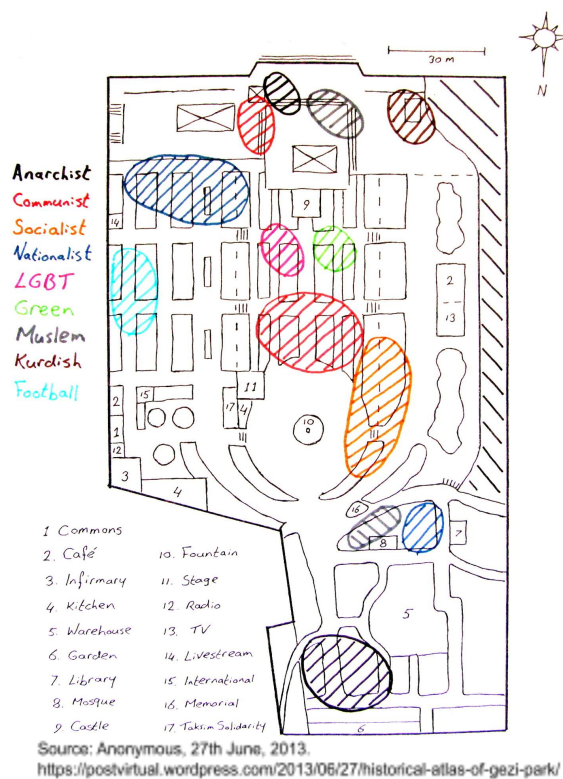 30 m
N
Anarchist
Communist
Socialist
Nationalist
LGBT
Green
Muslem
Kurdish
Football
9
14
2
13
2
15
1
12
3
4
17
4
11
10
16
8
7
5
6
1 Commons
2. Café
3. Infirmary
4. Kitchen
5. Warehouse
6. Garden
7. Library
8. Mosque
9. Castle
10. Fountain
11. Stage
12. Radio
13. TV
14. Livestream
15. International
16. Memorial
17. Taksim Solidarity
Source: Anonymous, 27th June, 2013.
https://postvirtual.wordpress.com/2013/06/27/historical-atlas-of-gezi-park/